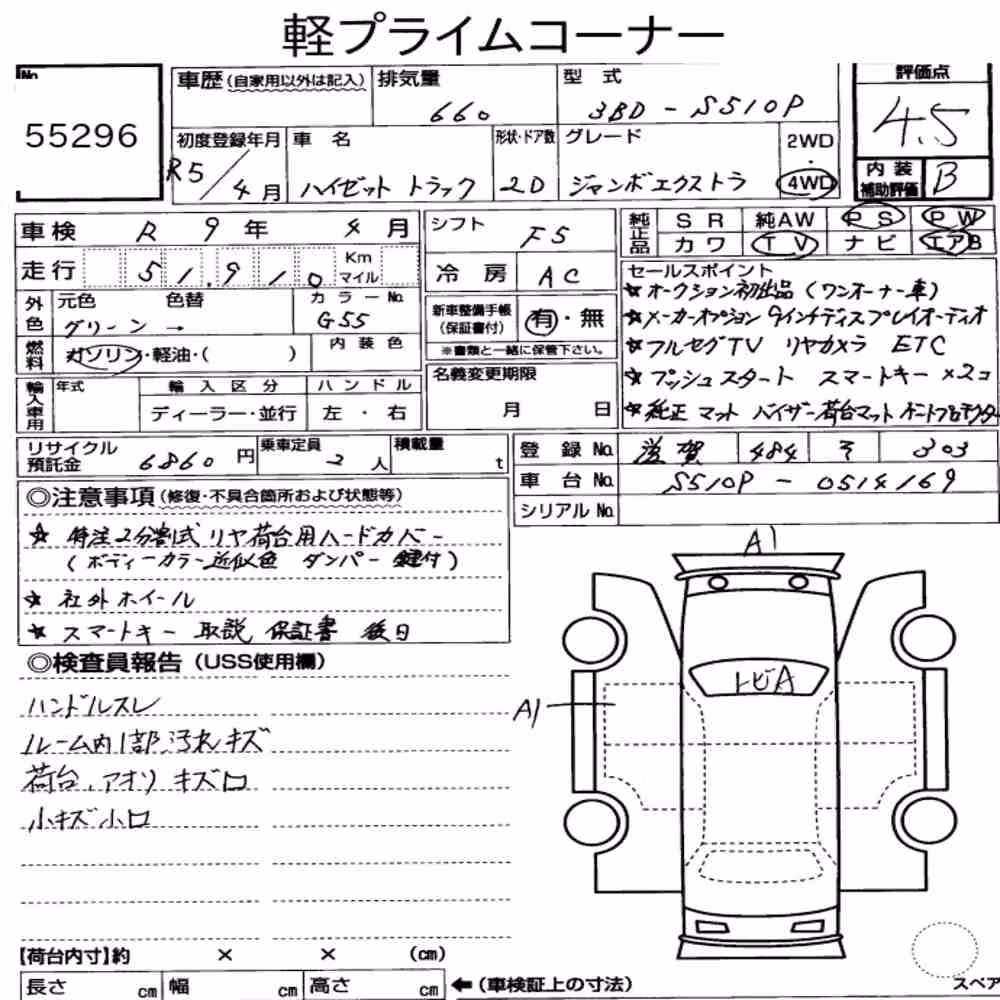 軽プライムコーナー
No.
55296
車歴(自家用以外は記入)
排気量
660
型式
3BD-S510P
評価点
4.5
初度登録年月
R5/4月
車名
ハイゼット トラック
形状・ドア数
2D
グレード
ジャンボエクストラ
2WD
・
4WD
内装
補助評価
B
車検 R 9年 4月
シフト
F5
純正品
SR 純AW PS PW
カワ TV ナビ エアB
走行 51,910 Km マイル
冷房 AC
セールスポイント
★オークション初出品(ワンオーナー車)
★メーカーオプション 9インチディスプレイオーディオ
★フルセグTV リヤカメラ ETC
★プッシュスタート スマートキー×2コ
★純正 マット バイザー 荷台マット
外色
元色 色替
グリーン →
カラーNo.
G55
新車整備手帳
(保証書付)
有・無
※書類と一緒に保管下さい。
燃料
ガソリン・軽油・( )
内装色
名義変更期限
月 日
輸入車用
年式
輸入区分
ディーラー・並行
ハンドル
左・右
リサイクル
預託金
6860円
乗車定員
2人
積載量
t
登録No. 滋賀 484 そ 303
車台No. S510P-0514169
シリアルNo.
◎注意事項(修復・不具合箇所および状態等)
★ 特注2分割式 リヤ荷台用ハードカバー
(ボディーカラー近似色 ダンパー 鍵付)
★ 社外ホイール
★ スマートキー 取説 保証書 後日
◎検査員報告(USS使用欄)
ハンドルスレ
ルーム内1部汚れキズ
荷台、アオリ キズ凹
小キズ小凹
A1
トビA
A1
【荷台内寸】約 × × (cm)
長さ cm 幅 cm 高さ cm
←(車検証上の寸法)
スペア